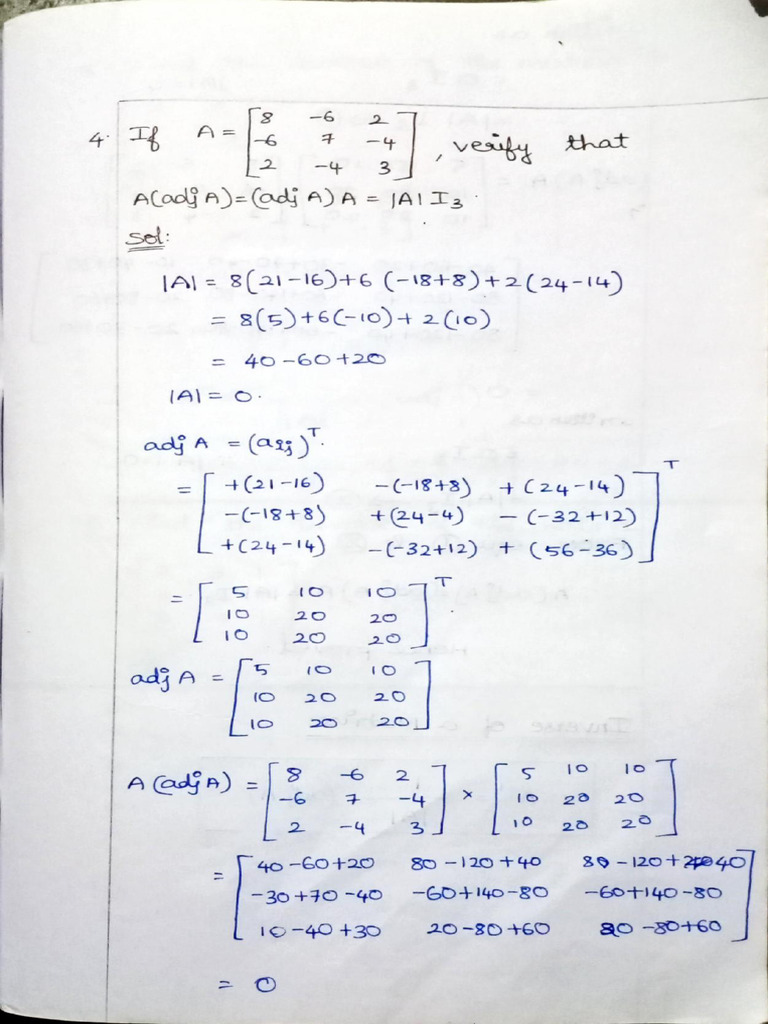 4. If A = [8 -6 2
-6 7 -4
2 -4 3], verify that
A(adj A) = (adj A) A = |A| I₃.
Sol:
|A| = 8(21-16)+6(-18+8)+2(24-14)
= 8(5)+6(-10)+2(10)
= 40-60+20
|A| = 0.
adj A = (aij)ᵀ.
= [+(21-16) -(-18+8) +(24-14)
-(-18+8) +(24-4) -(-32+12)
+(24-14) -(-32+12) +(56-36)]ᵀ
= [5 10 10
10 20 20
10 20 20]ᵀ.
adj A = [5 10 10
10 20 20
10 20 20]
A(adj A) = [8 -6 2
-6 7 -4
2 -4 3] × [5 10 10
10 20 20
10 20 20]
= [40-60+20 80-120+40 80-120+40
-30+70-40 -60+140-80 -60+140-80
10-40+30 20-80+60 20-80+60]
= 0